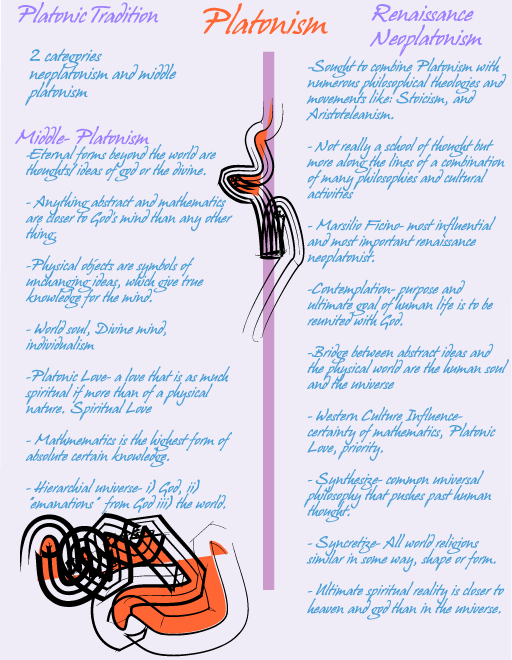 Platonic Tradition
Platonism
Renaissance
Neoplatonism
2 categories
neoplatonism and middle
platonism
Middle- Platonism
-Eternal forms beyond the world are
thoughts/ ideas of god or the divine.
- Anything abstract and mathematics
are closer to God's mind than any other
thing.
-Physical objects are symbols of
unchanging ideas, which give true
knowledge for the mind.
- World soul, Divine mind,
individualism
-Platonic Love- a love that is as much
spiritual if more than of a physical
nature. Spiritual Love
- Mathmematics is the highest form of
absolute certain knowledge.
- Hierarchial universe- i) God, ii)
"emanations" from God iii) the world.
-Sought to combine Platonism with
numerous philosophical theologies and
movements like: Stoicism, and
Aristoteleanism.
- Not really a school of thought but
more along the lines of a combination
of many philosophies and cultural
activities
- Marsilio Ficino- most influential
and most important renaissance
neoplatonist.
-Contemplation- purpose and
ultimate goal of human life is to be
reunited with God.
-Bridge between abstract ideas and
the physical world are the human soul
and the universe
- Western Culture Influence-
certainty of mathematics, Platonic
Love, priority.
- Synthesize- common universal
philosophy that pushes past human
thought.
- Syncretize- All world religions
similar in some way, shape or form.
- Ultimate spiritual reality is closer to
heaven and god than in the universe.